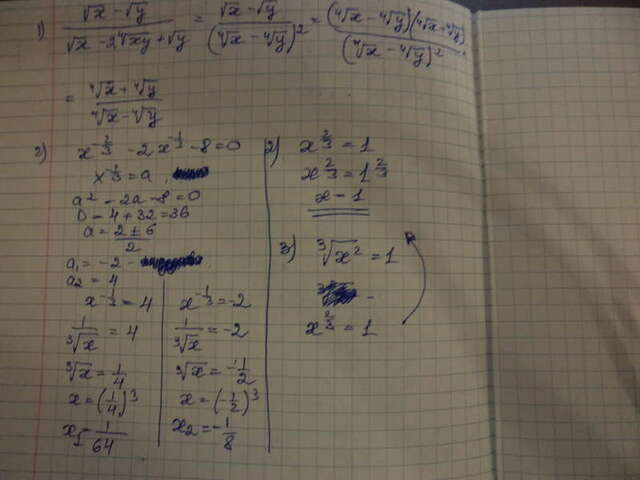 1) (√x - √y)/(√x - 2∜xy + √y) = (√x - √y)/(∜x - ∜y)² = (∜x - ∜y)(∜x + ∜y)/(∜x - ∜y)² =
= (∜x + ∜y)/(∜x - ∜y)
2) x^(-2/3) - 2x^(-1/3) - 8 = 0
x^(-1/3) = a,
a² - 2a - 8 = 0
D = 4 + 32 = 36
a = (2 ± 6)/2
a₁ = -2
a₂ = 4
x^(-1/3) = 4
1/∛x = 4
∛x = 1/4
x = (1/4)³
x₁ = 1/64
x^(-1/3) = -2
1/∛x = -2
∛x = -1/2
x = (-1/2)³
x₂ = -1/8
2) x^(2/3) = 1
x^(2/3) = 1^(2/3)
x - 1
3) ∛x² = 1
x^(2/3) = 1